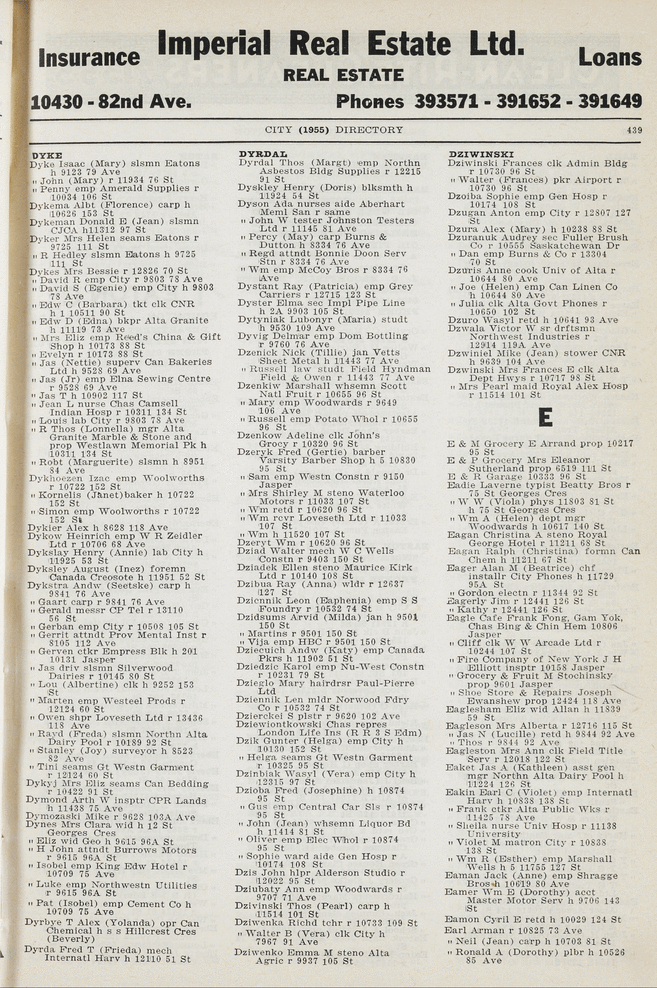 Insurance Imperial Real Estate Ltd. Loans
REAL ESTATE
10430 - 82nd Ave. Phones 393571 - 391652 - 391649
CITY (1955) DIRECTORY 439
DYKE
Dyke Isaac (Mary) slsmn Eatons
h 9123 79 Ave
" John (Mary) r 11934 76 St
" Penny emp Amerald Supplies r
10034 106 St
Dykema Albt (Florence) carp h
10626 153 St
Dykeman Donald E (Jean) slsmn
CJCA h11312 97 St
Dyker Mrs Helen seams Eatons r
9725 111 St
" R Hedley slsmn Eatons h 9725
111 St
Dykes Mrs Bessie r 12826 70 St
" David R emp City r 9803 78 Ave
" David S (Egenie) emp City h 9803
78 Ave
" Edw C (Barbara) tkt clk CNR
h 10511 90 St
" Edw D (Edna) bkpr Alta Granite
h 11119 73 Ave
" Mrs Eliz emp Reed's China & Gift
Shop h 10173 88 St
" Evelyn r 10173 88 St
" Jas (Nettie) superv Can Bakeries
Ltd h 9528 69 Ave
" Jas (Jr) emp Elna Sewing Centre
r 9528 69 Ave
" Jas T h 10902 117 St
" Jean L nurse Chas Camsell
Indian Hosp r 10311 134 St
" Louis lab City r 9803 78 Ave
" R Thos (Lonnella) mgr Alta
Granite Marble & Stone and
prop Westlawn Memorial Pk h
10311 134 St
" Robt (Marguerite) slsmn h 8951
84 Ave
Dykhoezen Izac emp Woolworths
r 10722 152 St
" Kornelis (Janet)baker h 10722
152 St
" Simon emp Woolworths r 10722
152 St
Dykier Alex h 8628 118 Ave
Dykow Heinrich emp W R Zeidler
Ltd r 10706 68 Ave
Dykslay Henry (Annie) lab City h
11925 53 St
Dyksley August (Inez) foremn
Canada Creosote h 11951 52 St
Dykstra Andw (Seetske) carp h
9841 76 Ave
" Gaart carp r 9841 76 Ave
" Gerald messr CP Tel r 13110
56 St
" Gerban emp City r 10508 105 St
" Gerrit attndt Prov Mental Inst r
8105 112 Ave
" Gerven ctkr Empress Blk h 201
10131 Jasper
" Jas driv slsmn Silverwood
Dairies r 10145 80 St
" Lou (Albertine) clk h 9252 153
St
" Marten emp Westeel Prods r
12124 60 St
" Owen shpr Loveseth Ltd r 13436
118 Ave
" Rayd (Freda) slsmn Northn Alta
Dairy Pool r 10189 92 St
" Stanley (Joy) surveyor h 8523
82 Ave
" Tini seams Gt Westn Garment
r 12124 60 St
Dykyj Mrs Eliz seams Can Bedding
r 10422 91 St
Dymond Arth W insptr CPR Lands
h 11438 75 Ave
Dymozaski Mike r 9628 103A Ave
Dynes Mrs Clara wid h 12 St
Georges Cres
" Eliz wid Geo h 9615 96A St
" H John attndt Burrows Motors
r 9615 96A St
" Isobel emp King Edw Hotel r
10709 75 Ave
" Luke emp Northwestn Utilities
r 9615 96A St
" Pat (Isobel) emp Cement Co h
10709 75 Ave
Dyrbye T Alex (Yolanda) opr Can
Chemical h s s Hillcrest Cres
(Beverly)
Dyrda Fred T (Frieda) mech
Internatl Harv h 12110 51 St
DYRDAL
Dyrdal Thos (Margt) emp Northn
Asbestos Bldg Supplies r 12215
91 St
Dyskley Henry (Doris) blksmth h
11924 54 St
Dyson Ada nurses aide Aberhart
Meml San r same
" John W tester Johnston Testers
Ltd r 11145 81 Ave
" Percy (May) carp Burns &
Dutton h 8334 76 Ave
" Regd attndt Bonnie Doon Serv
Stn r 8334 76 Ave
" Wm emp McCoy Bros r 8334 76
Ave
Dystant Ray (Patricia) emp Grey
Carriers r 12715 123 St
Dyster Elma sec Impl Pipe Line
h 2A 9903 105 St
Dytyniak Lubonyr (Maria) studt
h 9530 109 Ave
Dyvig Delmar emp Dom Bottling
r 9760 76 Ave
Dzenick Nick (Tillie) jan Vetts
Sheet Metal h 11443 77 Ave
" Russell law studt Field Hyndman
Field & Owen r 11443 77 Ave
Dzenkiw Marshall whsemn Scott
Natl Fruit r 10655 96 St
" Mary emp Woodwards r 9649
106 Ave
" Russell emp Potato Whol r 10655
96 St
Dzenkow Adeline clk John's
Grocy r 10320 96 St
Dzeryk Fred (Gertie) barber
Varsity Barber Shop h 5 10830
95 St
" Sam emp Westn Constn r 9150
Jasper
" Mrs Shirley M steno Waterloo
Motors r 11033 107 St
" Wm retd r 10620 96 St
" Wm rcvr Loveseth Ltd r 11033
107 St
" Wm h 11520 107 St
Dzeryt Wm r 10620 96 St
Dziad Walter mech W C Wells
Constn r 9403 150 St
Dziadek Ellen steno Maurice Kirk
Ltd r 10140 108 St
Dzibua Ray (Anna) wldr r 12637
127 St
Dziennik Leon (Eaphenia) emp S S
Foundry r 10532 74 St
Dzidsums Arvid (Milda) jan h 9501
150 St
" Martins r 9501 150 St
" Vija emp HBC r 9501 150 St
Dziecuich Andw (Katy) emp Canada
Pkrs h 11902 51 St
Dziedzic Karol emp Nu-West Constn
r 10231 79 St
Dzieglo Mary hairdrsr Paul-Pierre
Ltd
Dziennik Len mldr Norwood Fdry
Co r 10532 74 St
Dzierckel S plstr r 9620 102 Ave
Dziewiontkowski Chas repres
London Life Ins (R R 3 S Edm)
Dzik Gunter (Helga) emp City h
10130 152 St
" Helga seams Gt Westn Garment
r 10325 95 St
Dzinbiak Wasyl (Vera) emp City h
12315 97 St
Dzioba Fred (Josephine) h 10874
95 St
" Gus emp Central Car Sls r 10874
95 St
" John (Jean) whsemn Liquor Bd
h 11414 81 St
" Oliver emp Elec Whol r 10874
95 St
" Sophie ward aide Gen Hosp r
10174 108 St
Dzis John hlpr Alderson Studio r
12022 95 St
Dziubaty Ann emp Woodwards r
9707 71 Ave
Dzivinski Thos (Pearl) carp h
11514 101 St
Dziwenka Richd tchr r 10733 109 St
" Walter B (Vera) clk City h
7967 91 Ave
Dziwenko Emma M steno Alta
Agric r 9937 105 St
DZIWINSKI
Dziwinski Frances clk Admin Bldg
r 10730 96 St
" Walter (Frances) pkr Airport r
10730 96 St
Dzoiba Sophie emp Gen Hosp r
10174 108 St
Dzugan Anton emp City r 12807 127
St
Dzura Alex (Mary) h 10238 88 St
Dzuranuk Audrey sec Fuller Brush
Co r 10555 Saskatchewan Dr
" Dan emp Burns & Co r 13304
70 St
Dzuris Anne cook Univ of Alta r
10644 80 Ave
" Joe (Helen) emp Can Linen Co
h 10644 80 Ave
" Julia clk Alta Govt Phones r
10650 102 St
Dzuro Wasyl retd h 10641 93 Ave
Dzwala Victor W sr drftsmn
Northwest Industries r
12914 119A Ave
Dzwiniel Mike (Jean) stower CNR
h 9639 104 Ave
Dzwinski Mrs Frances E clk Alta
Dept Hwys r 10717 98 St
" Mrs Pearl maid Royal Alex Hosp
r 11514 101 St
E
E & M Grocery E Arrand prop 10217
95 St
E & P Grocery Mrs Eleanor
Sutherland prop 6519 111 St
E & R Garage 10333 96 St
Eadie Laverne typist Beatty Bros r
75 St Georges Cres
" W W (Viola) phys 11803 81 St
h 75 St Georges Cres
" Wm A (Helen) dept mgr
Woodwards h 10617 140 St
Eagan Christina A steno Royal
George Hotel r 11211 68 St
Eagan Ralph (Christina) formn Can
Chem h 11211 67 St
Eager Alan M (Beatrice) chf
installr City Phones h 11729
95A St
" Gordon electn r 11344 92 St
Eagerly Jim r 12441 126 St
" Kathy r 12441 126 St
Eagle Cafe Frank Fong, Gam Yok,
Chas Bing & Chin Hem 10806
Jasper
" Cliff clk W W Arcade Ltd r
10244 107 St
" Fire Company of New York J H
Elliott insptr 10158 Jasper
" Grocery & Fruit M Stochinsky
prop 9601 Jasper
" Shoe Store & Repairs Joseph
Ewanshew prop 12424 118 Ave
Eaglesham Eliz wid Allan h 11839
59 St
Eagleson Mrs Alberta r 12716 115 St
" Jas N (Lucille) retd h 9844 92 Ave
" Thos r 9844 92 Ave
Eagleston Mrs Ann clk Field Title
Serv r 12018 122 St
Eaket Jas A (Kathleen) asst gen
mgr Northn Alta Dairy Pool h
11224 126 St
Eakin Earl C (Violet) emp Internatl
Harv h 10838 138 St
" Frank ctkr Alta Public Wks r
11425 78 Ave
" Sheila nurse Univ Hosp r 11138
University
" Violet M matron City r 10838
138 St
" Wm R (Esther) emp Marshall
Wells h 5 11755 127 St
Eaman Jack (Anne) emp Shragge
Bros h 10619 80 Ave
Eamer Wm E (Dorothy) acct
Master Motor Serv h 9706 143
St
Eamon Cyril E retd h 10029 124 St
Earl Arman r 10825 73 Ave
" Neil (Jean) carp h 10703 81 St
" Ronald A (Dorothy) plbr h 10526
85 Ave